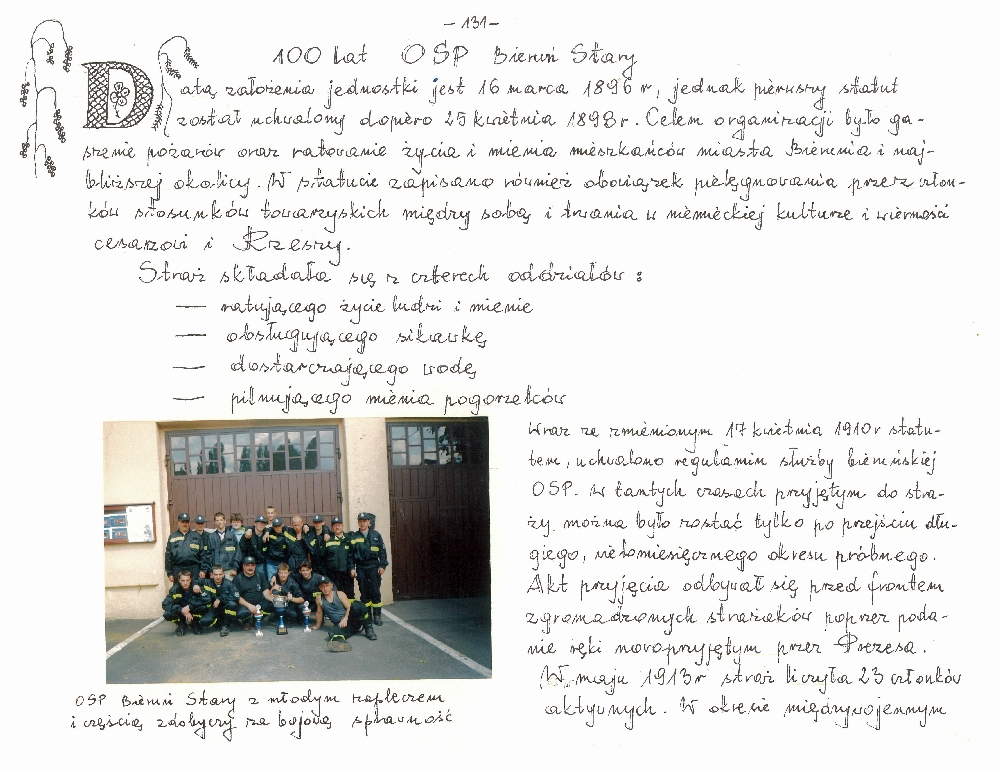 - 131 -
100 lat OSP Bieruń Stary
Datą założenia jednostki jest 16 marca 1896 r, jednak pierwszy statut
został uchwalony dopiero 25 kwietnia 1898 r. Celem organizacji było ga-
szenie pożarów oraz ratowanie życia i mienia mieszkańców miasta Bierunia i naj-
bliższej okolicy. W statucie zapisano również obowiązek pielęgnowania przez człon-
ków stosunków towarzyskich między sobą i trwania w niemieckiej kulturze i wierność
cesarzowi i Rzeszy.
Straż składała się z czterech oddziałów :
— ratującego życie ludzi i mienie
— obsługującego sikawkę
— dostarczającego wodę
— pilnującego mienia pogorzelców
Wraz ze zmienionym 17 kwietnia 1910 r statu-
tem, uchwalono regulamin służby bieruńskiej
OSP. W tamtych czasach przyjętym do stra-
ży można było zostać tylko po przejściu dłu-
giego, wielomiesięcznego okresu próbnego.
Akt przyjęcia odbywał się przed frontem
zgromadzonych strażaków poprzez poda-
nie ręki nowoprzyjętym przez Prezesa.
W maju 1913 r straż liczyła 23 członków
aktywnych. W okresie międzywojennym
OSP Bieruń Stary z młodym zapleczem
i częścią zdobyczy za bojową sprawność